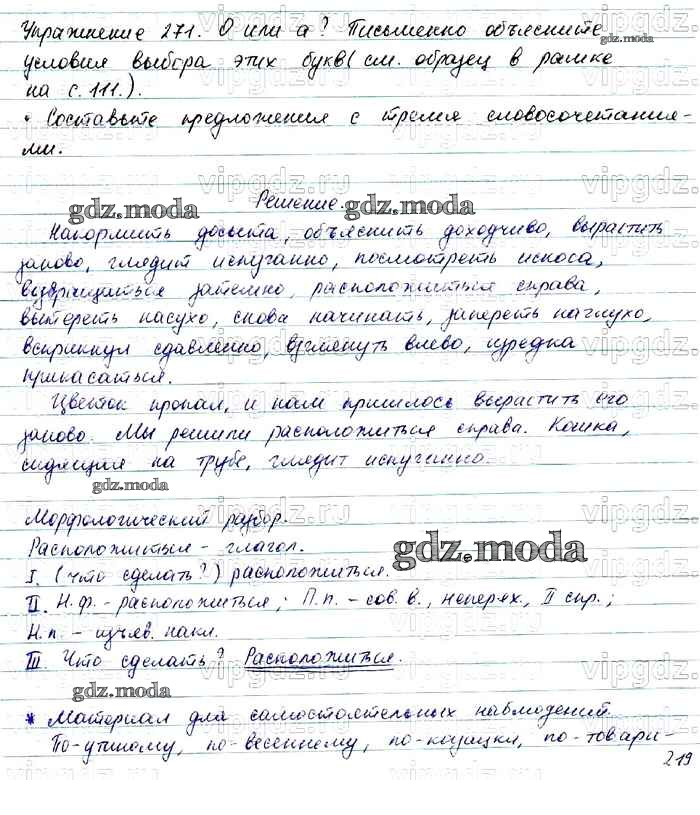 Упражнение 271. О или а? Письменно объясните
условия выбора этих букв (см. образец в рамке
на с. 111.).
• Составьте предложения с тремя словосочетания-
ми.
Решение.
Накормить досыта, объяснить доходчиво, вырастить
заново, глядит испуганно, посмотреть искоса,
возвращаться затемно, расположиться справа,
вытереть насухо, снова начинать, запереть наглухо,
вскрикнул сдавленно, взглянуть влево, изредка
прикасаться.
Цветок пропал, и нам пришлось вырастить его
заново. Мы решили расположиться справа. Кошка,
сидящая на трубе, глядит испуганно.
Морфологический разбор.
Расположиться - глагол.
I. (Что сделать?) расположиться.
II. Н.ф. - расположиться; П.п. - сов. в., неперех., II спр.;
Н.п. - изъяв. накл.
III. Что сделать? Расположиться.
* Материал для самостоятельных наблюдений
По-утиному, по-весеннему, по-кошачьи, по-товари-
219
gdz.moda
gdz.moda
gdz.moda
gdz.moda
gdz.moda
vipgdz.ru